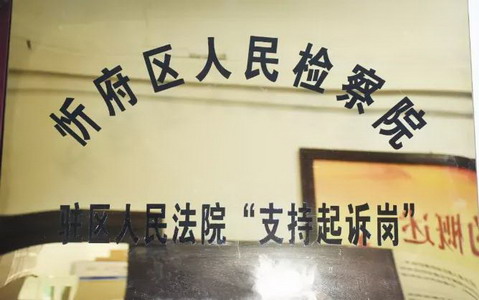 忻府区人民检察院
驻区人民法院“支持起诉岗”
概述